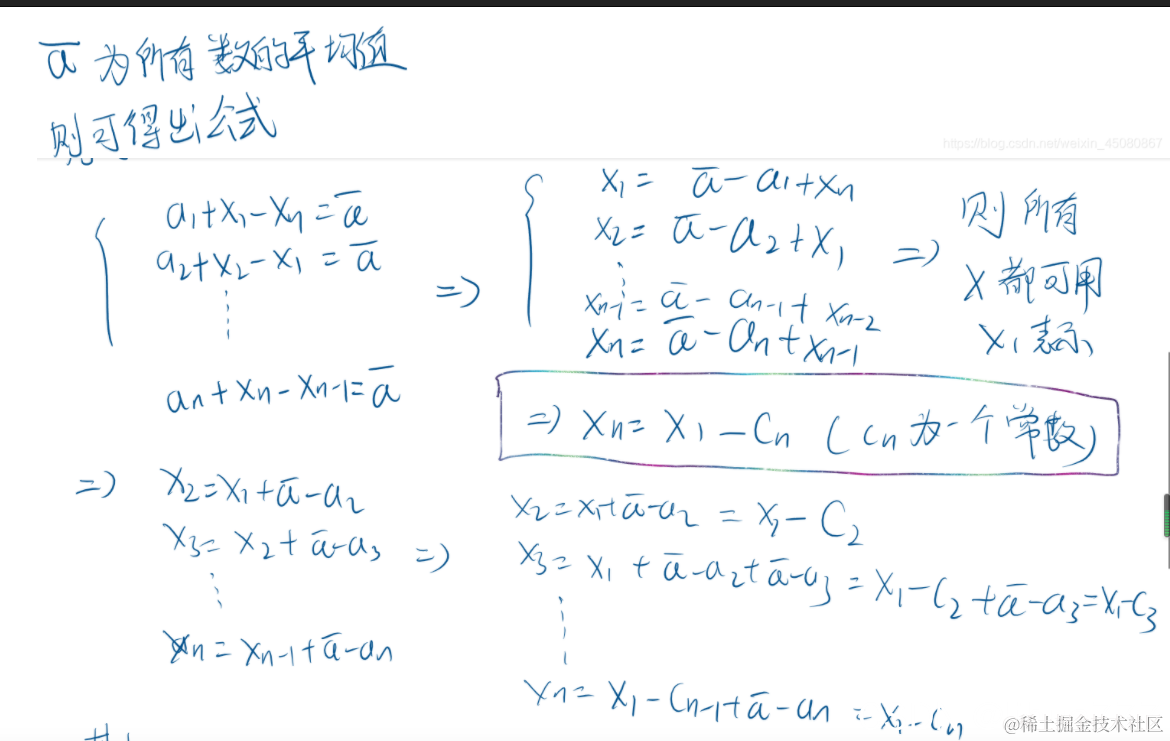 a̅ 为所有数的平均值
则可得出公式
https://blog.csdn.net/weixin_45080867
a₁+x₁-xₙ=a̅
a₂+x₂-x₁=a̅
⋮
aₙ+xₙ-xₙ₋₁=a̅
=>
x₁= a̅-a₁+xₙ
x₂= a̅-a₂+x₁
⋮
xₙ₋₁= a̅- aₙ₋₁+ xₙ₋₂
xₙ= a̅-aₙ+xₙ₋₁
=>
则所有
x都可用
x₁表示
=> xₙ= x₁-cₙ (cₙ为一个常数)
=> x₂=x₁+a̅-a₂
x₃= x₂+a̅-a₃
⋮
xₙ= xₙ₋₁+a̅-aₙ
=>
x₂=x₁+a̅-a₂ = x₁-c₂
x₃= x₁+a̅-a₂+a̅-a₃ = x₁-c₂+a̅-a₃=x₁-c₃
⋮
xₙ= x₁-cₙ₋₁+a̅-aₙ = x₁-cₙ
@稀土掘金技术社区